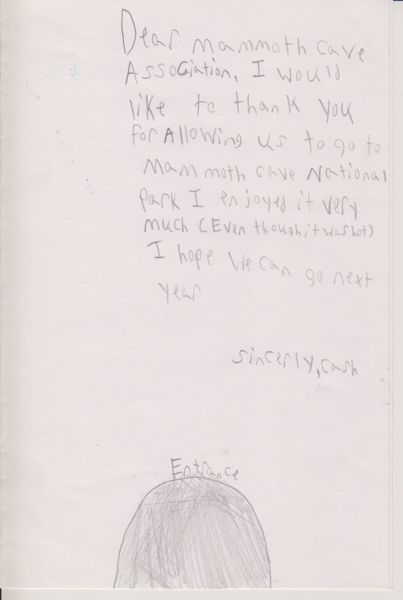 Dear mammoth cave
Association, I would
like to thank you
for Allowing us to go to
Mammoth cave National
park I enjoyed it very
much (Even though, it was hot)
I hope we can go next
year
sincerly, cash
Entrance